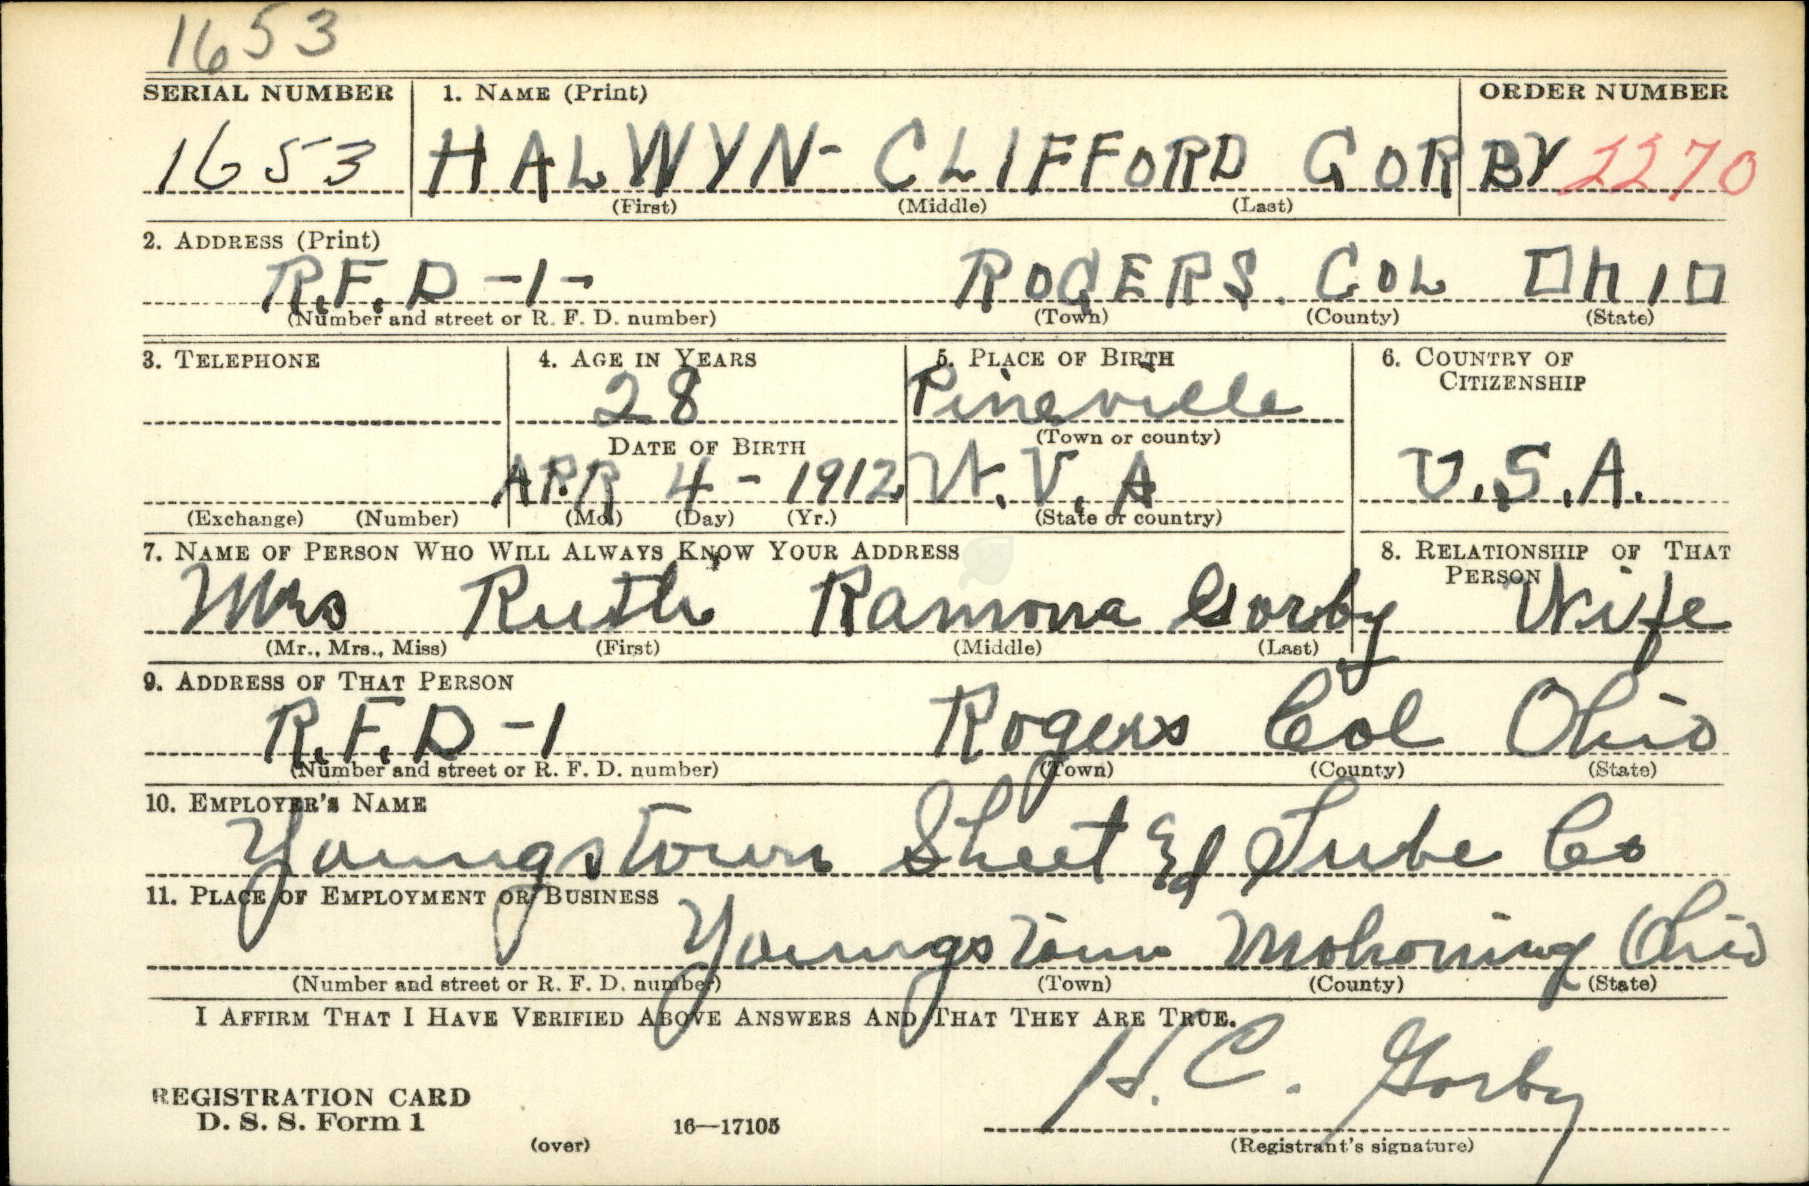 1653
SERIAL NUMBER 1. NAME (Print) ORDER NUMBER
1653 HALWYN- CLIFFORD GORBY 2270
(First) (Middle) (Last)
2. ADDRESS (Print)
R.F.D -1- ROGERS. COL OHIO
(Number and street or R. F. D. number) (Town) (County) (State)
3. TELEPHONE 4. AGE IN YEARS 5. PLACE OF BIRTH 6. COUNTRY OF CITIZENSHIP
28 Pineville
DATE OF BIRTH (Town or county)
APR 4 - 1912. W.V.A U.S.A.
(Exchange) (Number) (Mo.) (Day) (Yr.) (State or country)
7. NAME OF PERSON WHO WILL ALWAYS KNOW YOUR ADDRESS 8. RELATIONSHIP OF THAT PERSON
Mrs Ruth Ramona Gorby Wife
(Mr., Mrs., Miss) (First) (Middle) (Last)
9. ADDRESS OF THAT PERSON
R.F.D -1 Rogers Col Ohio
(Number and street or R. F. D. number) (Town) (County) (State)
10. EMPLOYER'S NAME
Youngstown Sheet & Tube Co
11. PLACE OF EMPLOYMENT OR BUSINESS
Youngstown Mohoning Ohio
(Number and street or R. F. D. number) (Town) (County) (State)
I AFFIRM THAT I HAVE VERIFIED ABOVE ANSWERS AND THAT THEY ARE TRUE.
H. C. Gorby
REGISTRATION CARD
D. S. S. Form 1 16—17105
(over) (Registrant's signature)